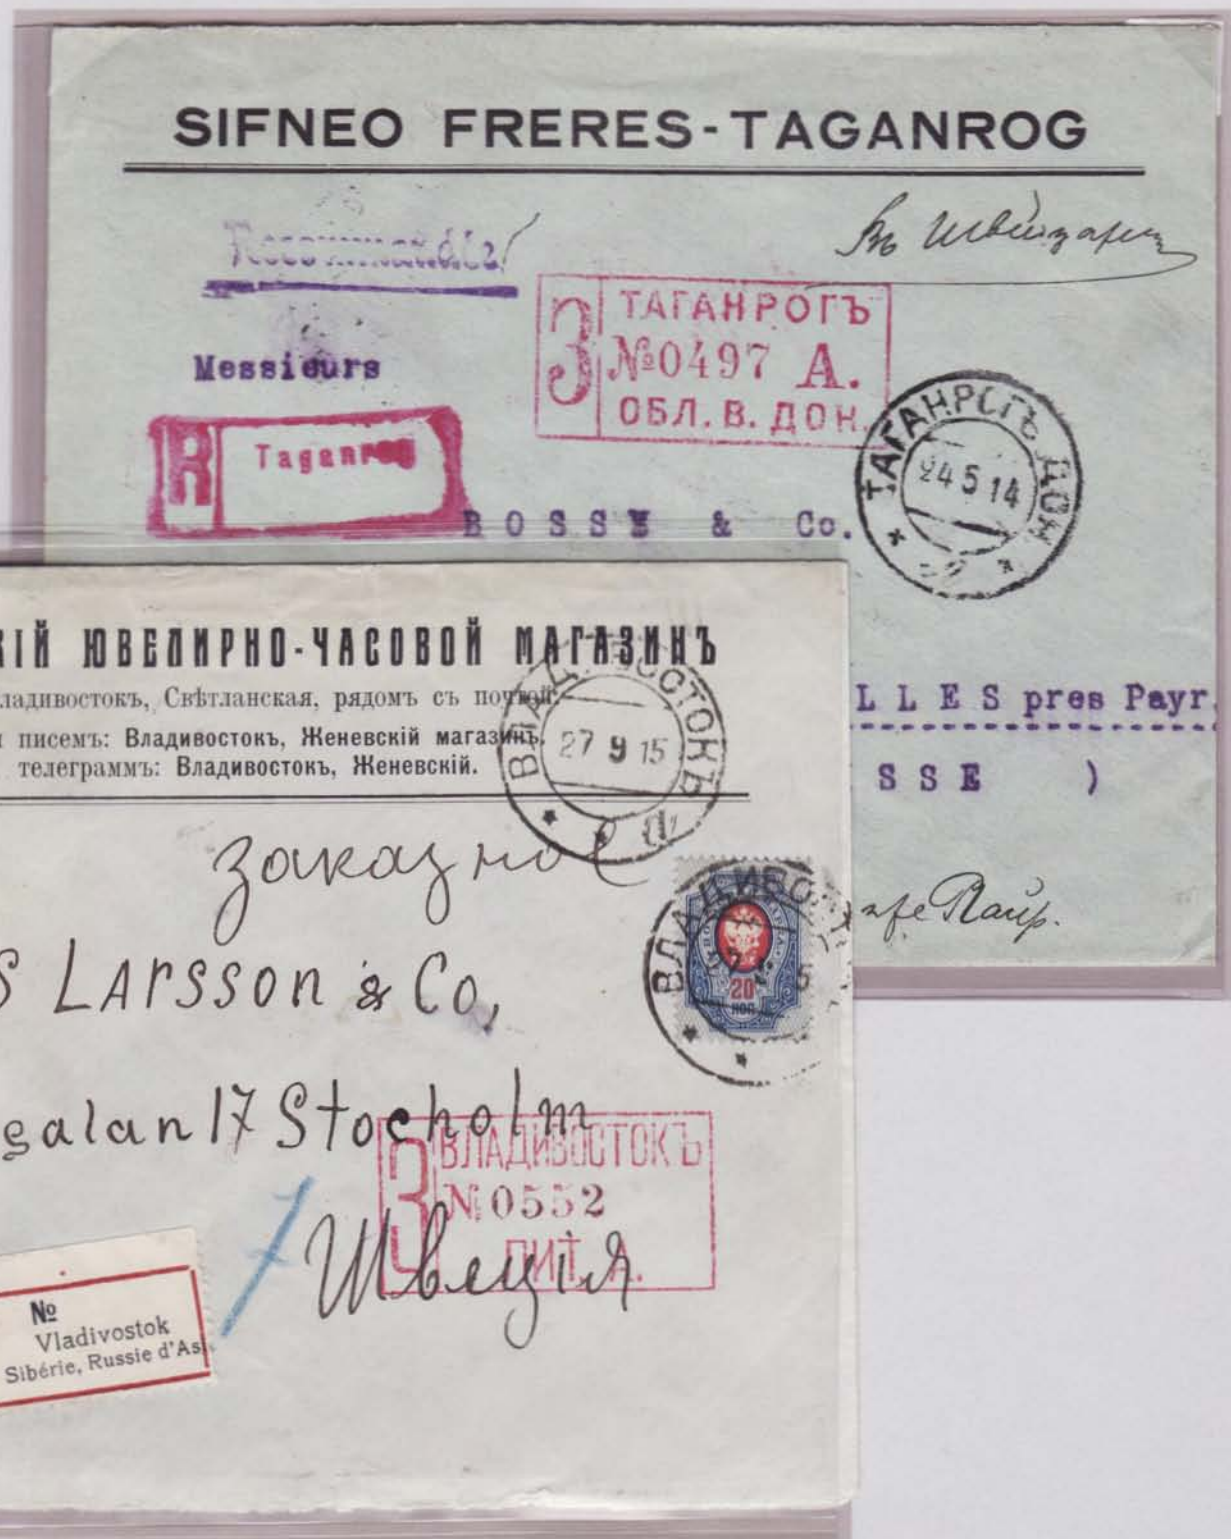 SIFNEO FRERES-TAGANROG
Recommandée
Въ Швейцарію
З
ТАГАНРОГЪ
№0497 А.
ОБЛ. В. ДОН.
Messieurs
R
Taganrog
ТАГАНРОГЪ ДОН
24 5 14
BOSSY & Co.
LLES pres Payr
SSE )
Пайр.
КІЙ ЮВЕЛИРНО-ЧАСОВОЙ МАГАЗИНЪ
ладивостокъ, Свѣтланская, рядомъ съ почтой.
писемъ: Владивостокъ, Женевскій магазинъ.
телеграммъ: Владивостокъ, Женевскій.
ВЛАДИВОСТОКЪ
27 9 15
заказное
S LARSSON & Co,
ВЛАДИВОСТ
20
КОП
galan 17 Stocholm
З
ВЛАДИВОСТОКЪ
№ 0552
ЛИТ. А.
Швеція
№
Vladivostok
Sibérie, Russie d'As